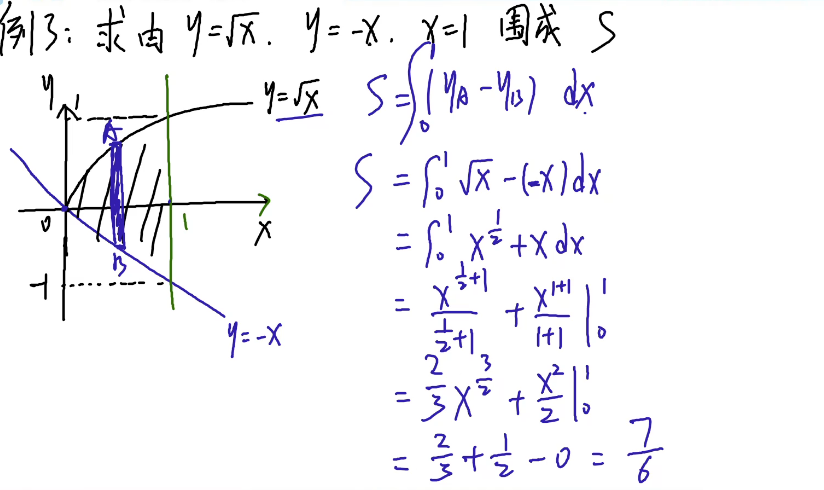 例3: 求由 y=√x. y=-x. x=1 围成 S
y
1
y=√x
A
0
1
x
B
-1
y=-x
S=∫₀¹(y_A-y_B) dx
S=∫₀¹√x-(-x)dx
=∫₀¹x^{1/2}+xdx
=x^{1/2+1}/(1/2+1)+x^{1+1}/(1+1)|₀¹
=2/3x^{3/2}+x²/2|₀¹
=2/3+1/2-0=7/6